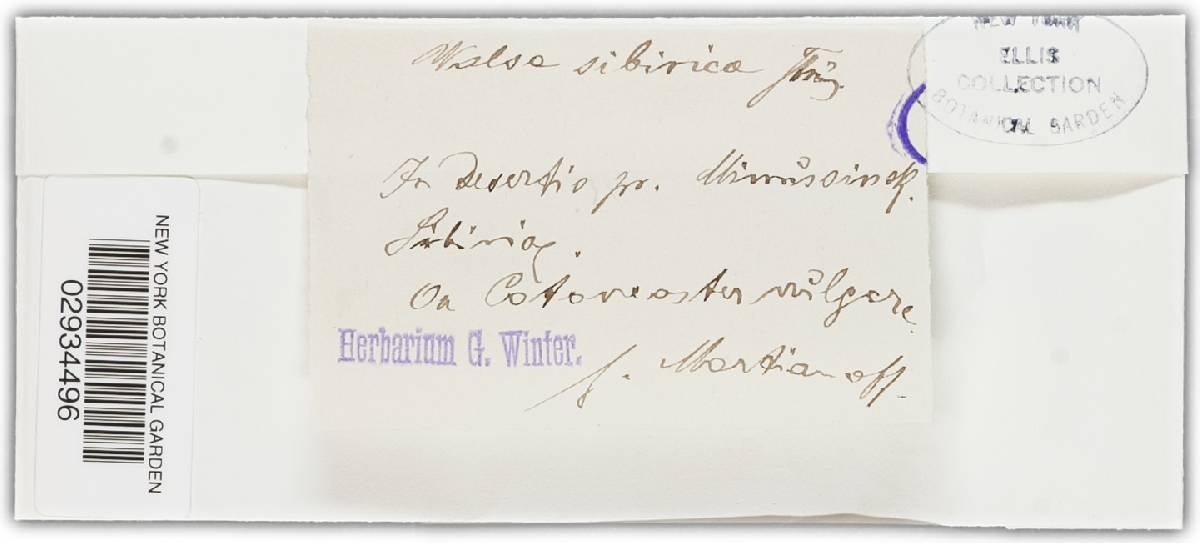 Valsa sibirica Thüm.
In desertis pr. Minussinsk
Sibiriae.
On Cotoneaster vulgare
Herbarium G. Winter.
f. Martianoff.
NEW YORK
ELLIS
COLLECTION
BOTANICAL GARDEN
NEW YORK BOTANICAL GARDEN
02934496